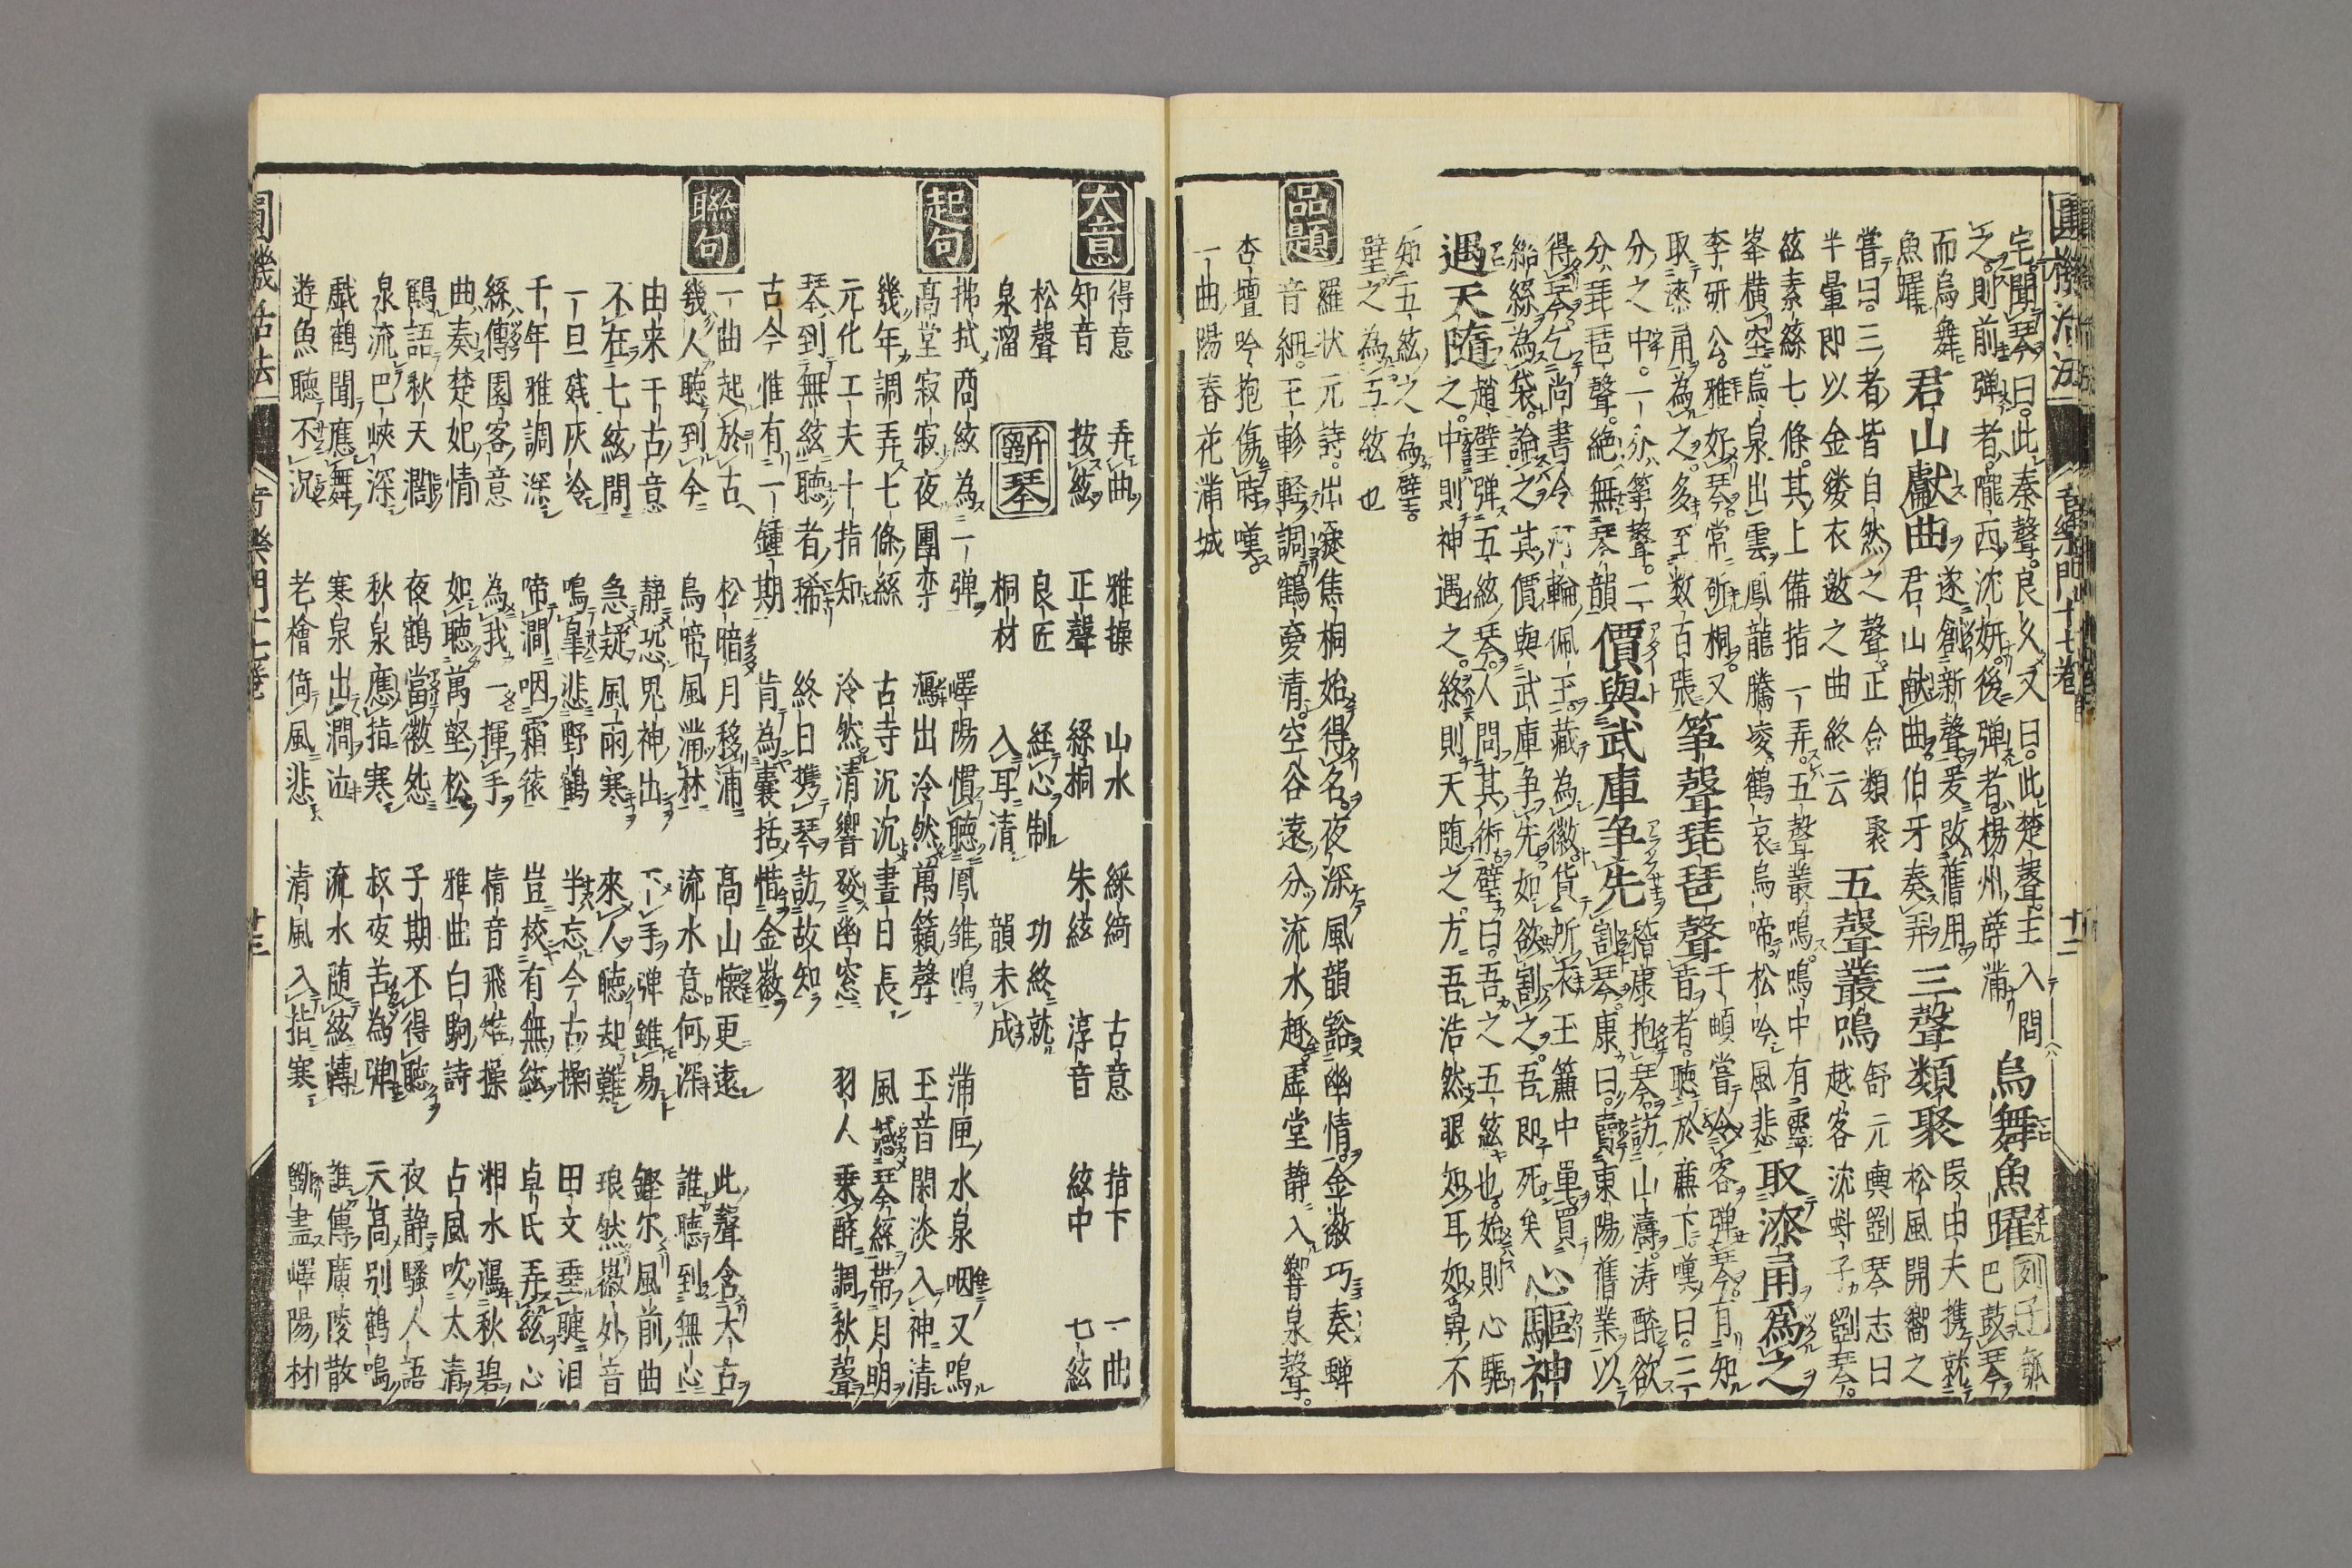 圓機活法
音樂門十七卷
十二
宅聞琴曰此秦聲良久又曰此楚聲主入問
之則前彈者隴西沈妍後彈者楊州薛滿
烏舞魚躍
列子
瓠巴鼓琴
而烏舞
魚躍
君山獻曲
遂創新聲爰改舊用
君山献曲伯牙奏弄
三聲類聚
叚由夫携就
松風開嚮之
嘗曰三者皆自然之聲正合類聚
半暈即以金缕衣邀之曲終云
五聲叢鳴
舒元輿劉琴志曰
越客沈蚪子劉琴
絃素絲七條其上備指一弄五聲叢鳴鳴中有靈
峯橫空烏泉出雲鳳龍騰凌鶴哀烏啼松吟風悲
取漆甬爲之
李研公雅好琴常斫桐又
取漆甬為之多至数百張
箏聲琵琶聲
于頔嘗令客彈琴有知
音者聽於簾下嘆曰三
分之中一分箏聲二
分琵琶聲絶無琴韻
價與武庫争先
嵇康抱琴訪山濤涛醉欲
割琴康曰賣東陽舊業以
得琴乞尚書令河輪佩玉藏為徽貨所衣玉簾中單買
紿絲為袋論之其價與武庫争先如欲割之吾即死矣
心驅神
遇天隨
趙璧彈五絃琴人問其術璧曰吾之五絃也始則心驅
之中則神遇之終則天随之方吾浩然眼如耳如鼻不
知五絃之為璧
璧之為五絃也
品題
羅状元詩出爨焦桐始得名夜深風韻豁幽情金徽巧奏蟬
音細玉軫輕調鶴夢清空谷遠分流水趣虚堂静入響泉聲
杏壇吟抱傷時嘆
一曲陽春花滿城
大意
得意　弄曲　雅操　山水　綵綺　古意　指下　一曲
知音　按絃　正聲　絲桐　朱絃　淳音　絃中　七絃
松聲
泉溜
斲琴
良匠　経心制　功終就
桐材　入耳清　韻未成
起句
拂拭商絃為一弾　嶧陽慣聽鳳雏鳴　滿匣水泉咽又鳴
高堂寂寂夜團欒　瀉出泠然萬籟聲　玉音閑淡入神清
幾年調弄七條絲　古寺沉沉晝日長　風慼琴絲帯月明
元化工夫十指知　泠然清響發幽窓　羽人乗醉調秋聲
琴到無絃聽者稀　終日携琴訪故知
古今惟有一鍾期　肯為囊括惜金徽
聯句
一曲起於古　松暗月移浦　高山懷更遠　此聲含太古
幾人聽到今　烏啼風滿林　流水意何深　誰聽到無心
由来干古意　静恐鬼神出　下手弾錐易　鏗尔風前曲
不在七絃間　急疑風雨寒　來人聴却難　琅然徽外音
一旦残灰冷　鳴皐悲野鶴　半忘今古操　田文垂睫泪
千年雅調深　啼澗咽霜猿　豈校有無絃　卓氏弄絃心
絲傳園客意　為我一揮手　情音飛雉操　湘水瀉秋碧
曲奏楚妃情　如聽萬壑松　雅曲白駒詩　占風吹太清
鶴語秋天濶　夜鶴當徽怨　子期不得聽　夜静騷人語
泉流巴峽深　秋泉應指寒　叔夜苦為彈　天高别鶴鳴
戲鶴聞應舞　寒泉出澗泣　流水随絃轉　誰傳廣陵散
遊魚聽不沉　老檜倚風悲　清風入指寒　斲盡嶧陽材
圓機活法
音樂門十七卷
十三